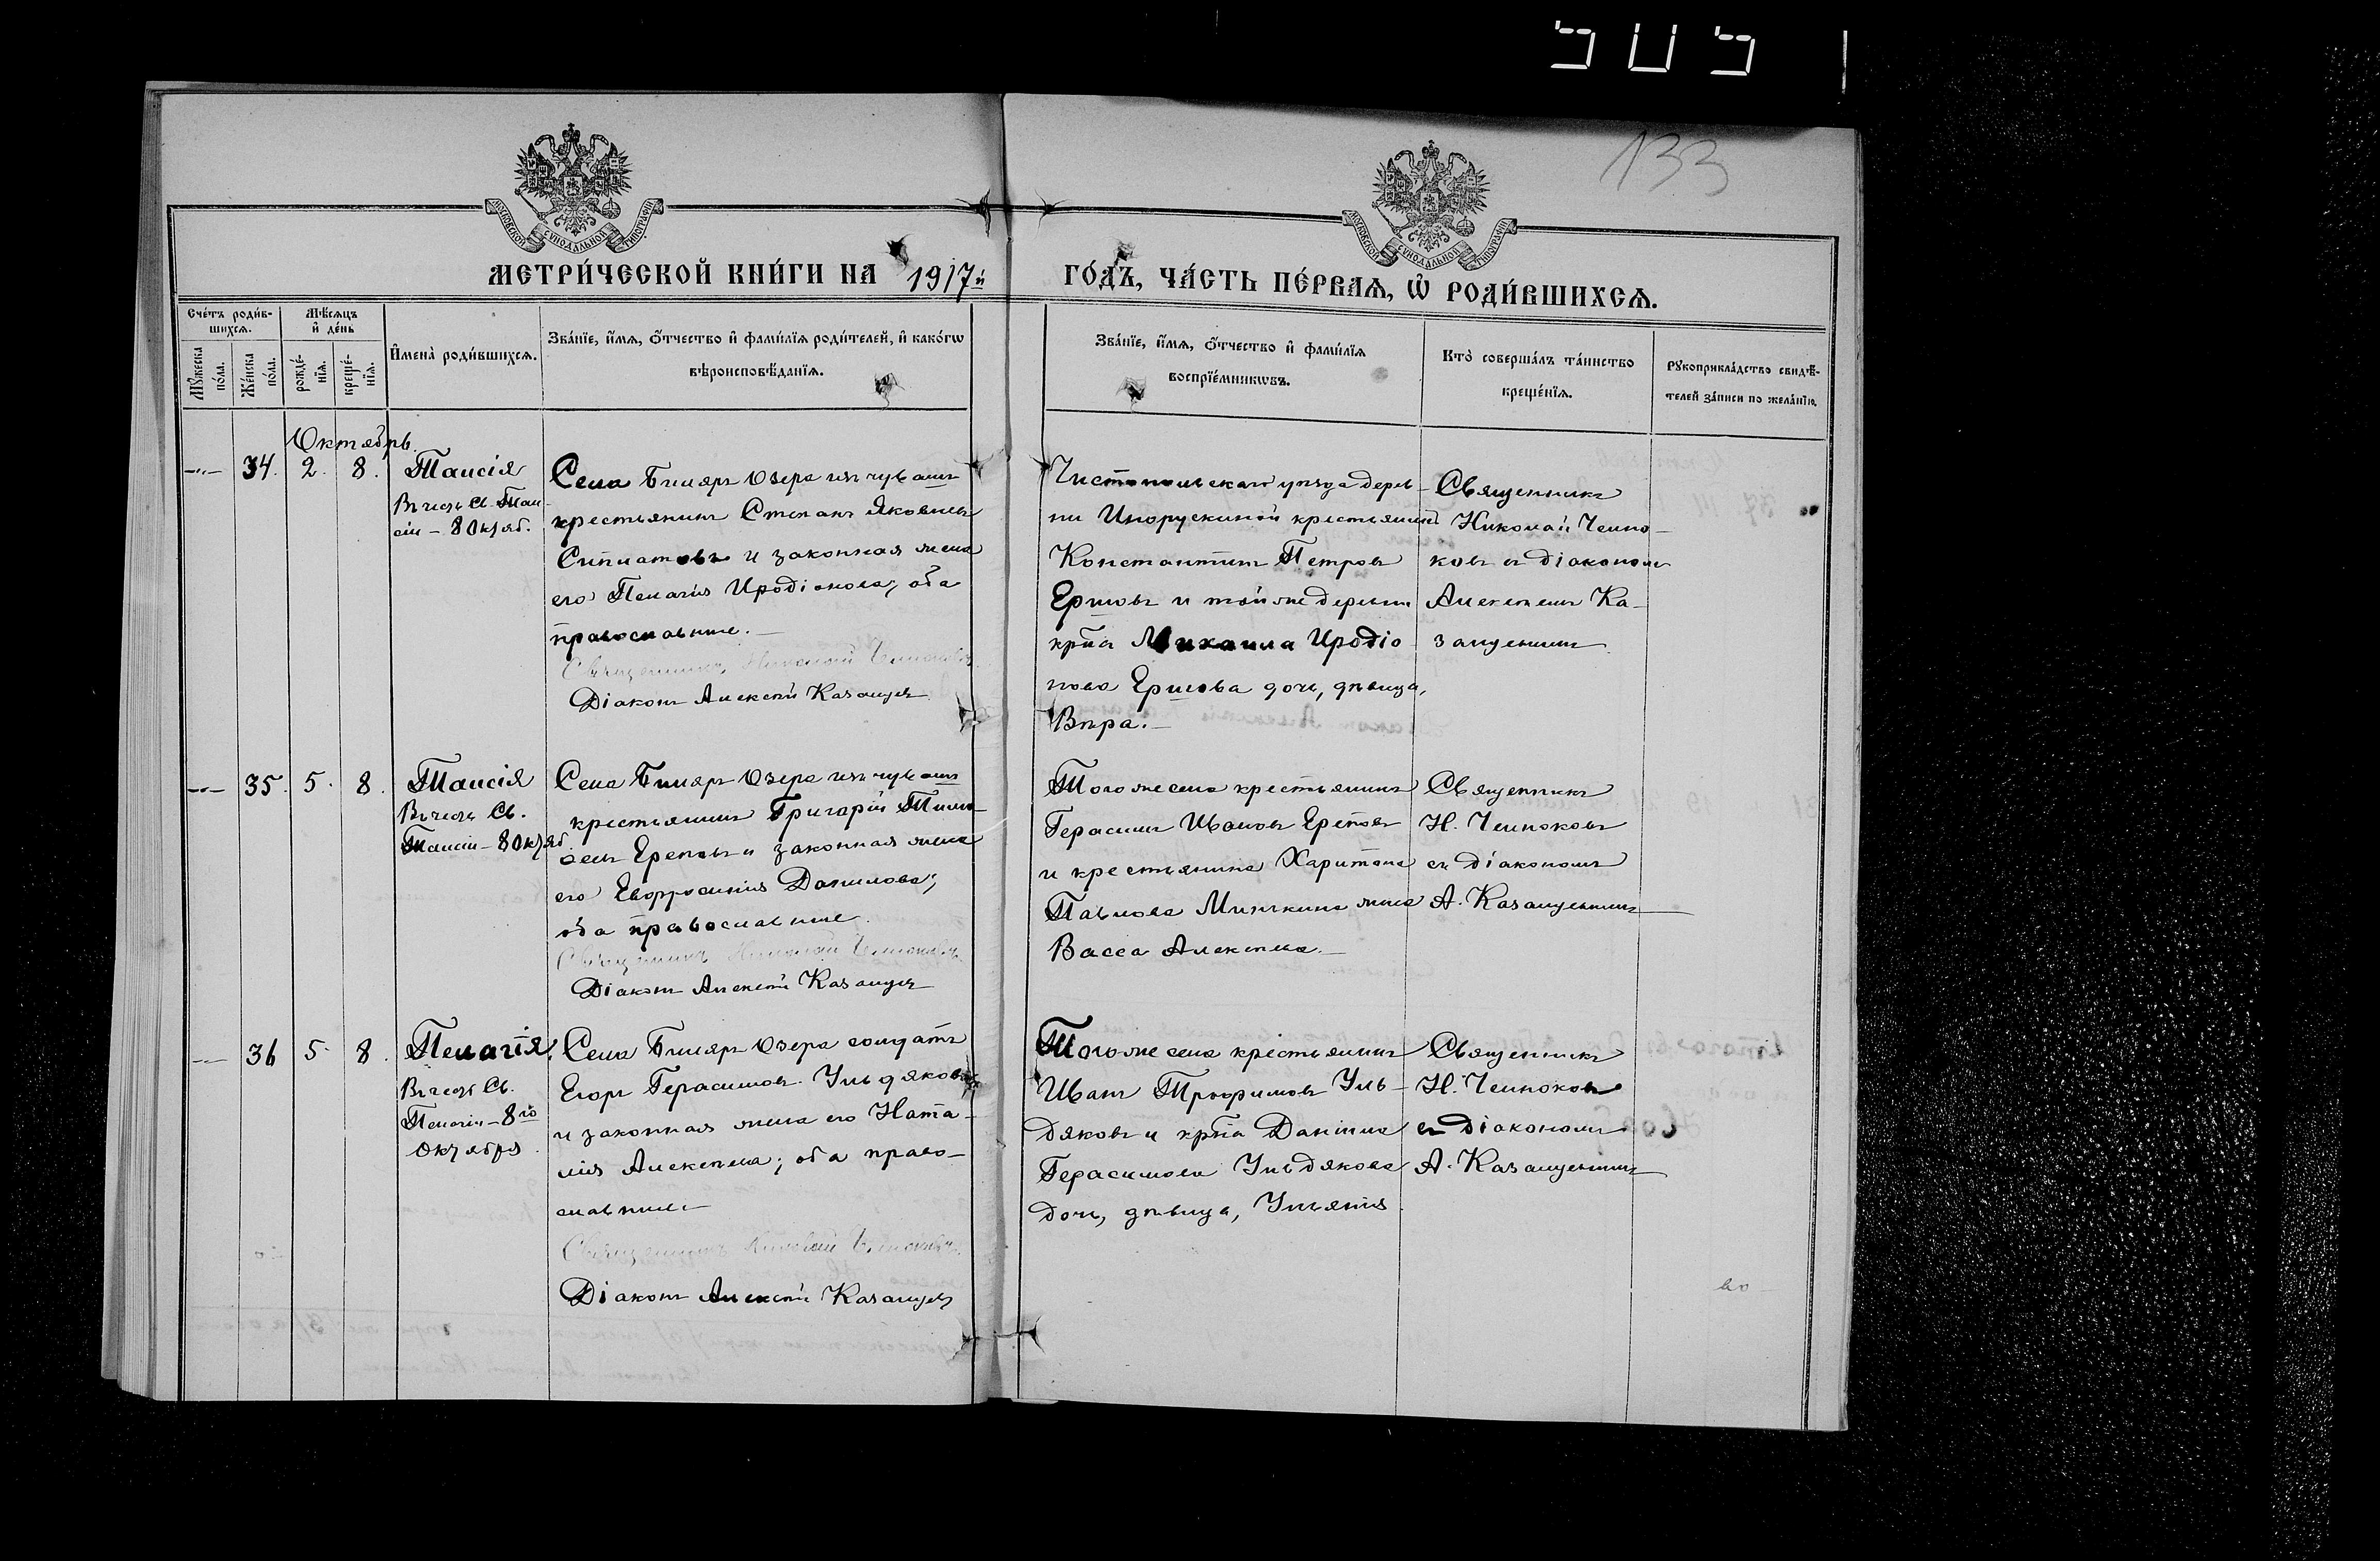 133
МОСКОВСКОЙ СИНОДАЛЬНОЙ ТИПОГРАФІИ
МОСКОВСКОЙ СИНОДАЛЬНОЙ ТИПОГРАФІИ
МЕТРИ́ЧЕСКОЙ КНИ́ГИ НА 1917й
ГО́ДЪ, ЧА́СТЬ ПЕ́РВАЯ, Ѡ҆ РОДИ́ВШИХСЯ.
Сче́тъ роди́в-
шихся.
Мꙋ́жеска
по́ла.
Же́нска
по́ла.
Мѣ́сяцъ
и҆ де́нь
рожде́-
нїя.
креще́-
нїя.
И҆мена̀ роди́вшихся.
Зва́нїе, и҆́мя, ѻ҆́тчество и҆ фами́лїя роди́телей, и҆ како́гѡ
вѣроисповѣ́данїя.
Зва́нїе, и҆́мя, ѻ҆́тчество и҆ фами́лїя
воспрїе́мникѡвъ.
Кто̀ соверша́лъ та́инство
креще́нїя.
Рꙋкоприкла́дство свидѣ́-
телей за́писи по жела́нїю.
Октябрь.
34. 2. 8.
Таисія
Въ честь Св. Таи-
сіи – 8 Октяб.
Села Биляръ Озера изъ чувашъ
крестьянинъ Стефанъ Яковлевъ
и законная жена
его Пелагія Иродіонова; оба
православные.
Священникъ Николай Чемоковъ
Діаконъ Алексѣй Казанцевъ
Чистопольскаго уѣзда дерев-
ни крестьянинъ
Константинъ Петровъ
Ершовъ и той же деревни
кр-на Михаила Иродіо-
нова Ершова дочь, дѣвица,
Вѣра.
Священникъ
Николай
ковъ съ діакономъ
Алексѣемъ Ка-
занцевымъ
35. 5. 8.
Таисія
Въ честь Св.
Таисіи – 8 Октяб.
Села Биляръ Озера изъ чувашъ
крестьянинъ Григорій
и законная жена
его Евфросинія Данилова;
оба православные.
Священникъ Николай
Діаконъ Алексѣй Казанцевъ
Того же села крестьянинъ
Герасимъ Ивановъ
и крестьянина Харитона
Павлова жена
Васса Алексѣева.
Священникъ
Н.
съ діакономъ
А. Казанцевымъ
36 5. 8.
Пелагія.
Въ честь Св.
Пелагіи – 8го
Октября.
Села Биляръ Озера солдатъ
Егоръ Герасимовъ Ульдяковъ
и законная жена его Ната-
лія Алексѣева; оба право-
славные.
Священникъ Николай
Діаконъ Алексѣй Казанцевъ
Того же села крестьянинъ
Иванъ Трофимовъ Уль-
дяковъ и кр-на Даніила
Герасимова Ульдякова
дочь, дѣвица, Ульянія.
Священникъ
Н.
съ діакономъ
А. Казанцевымъ